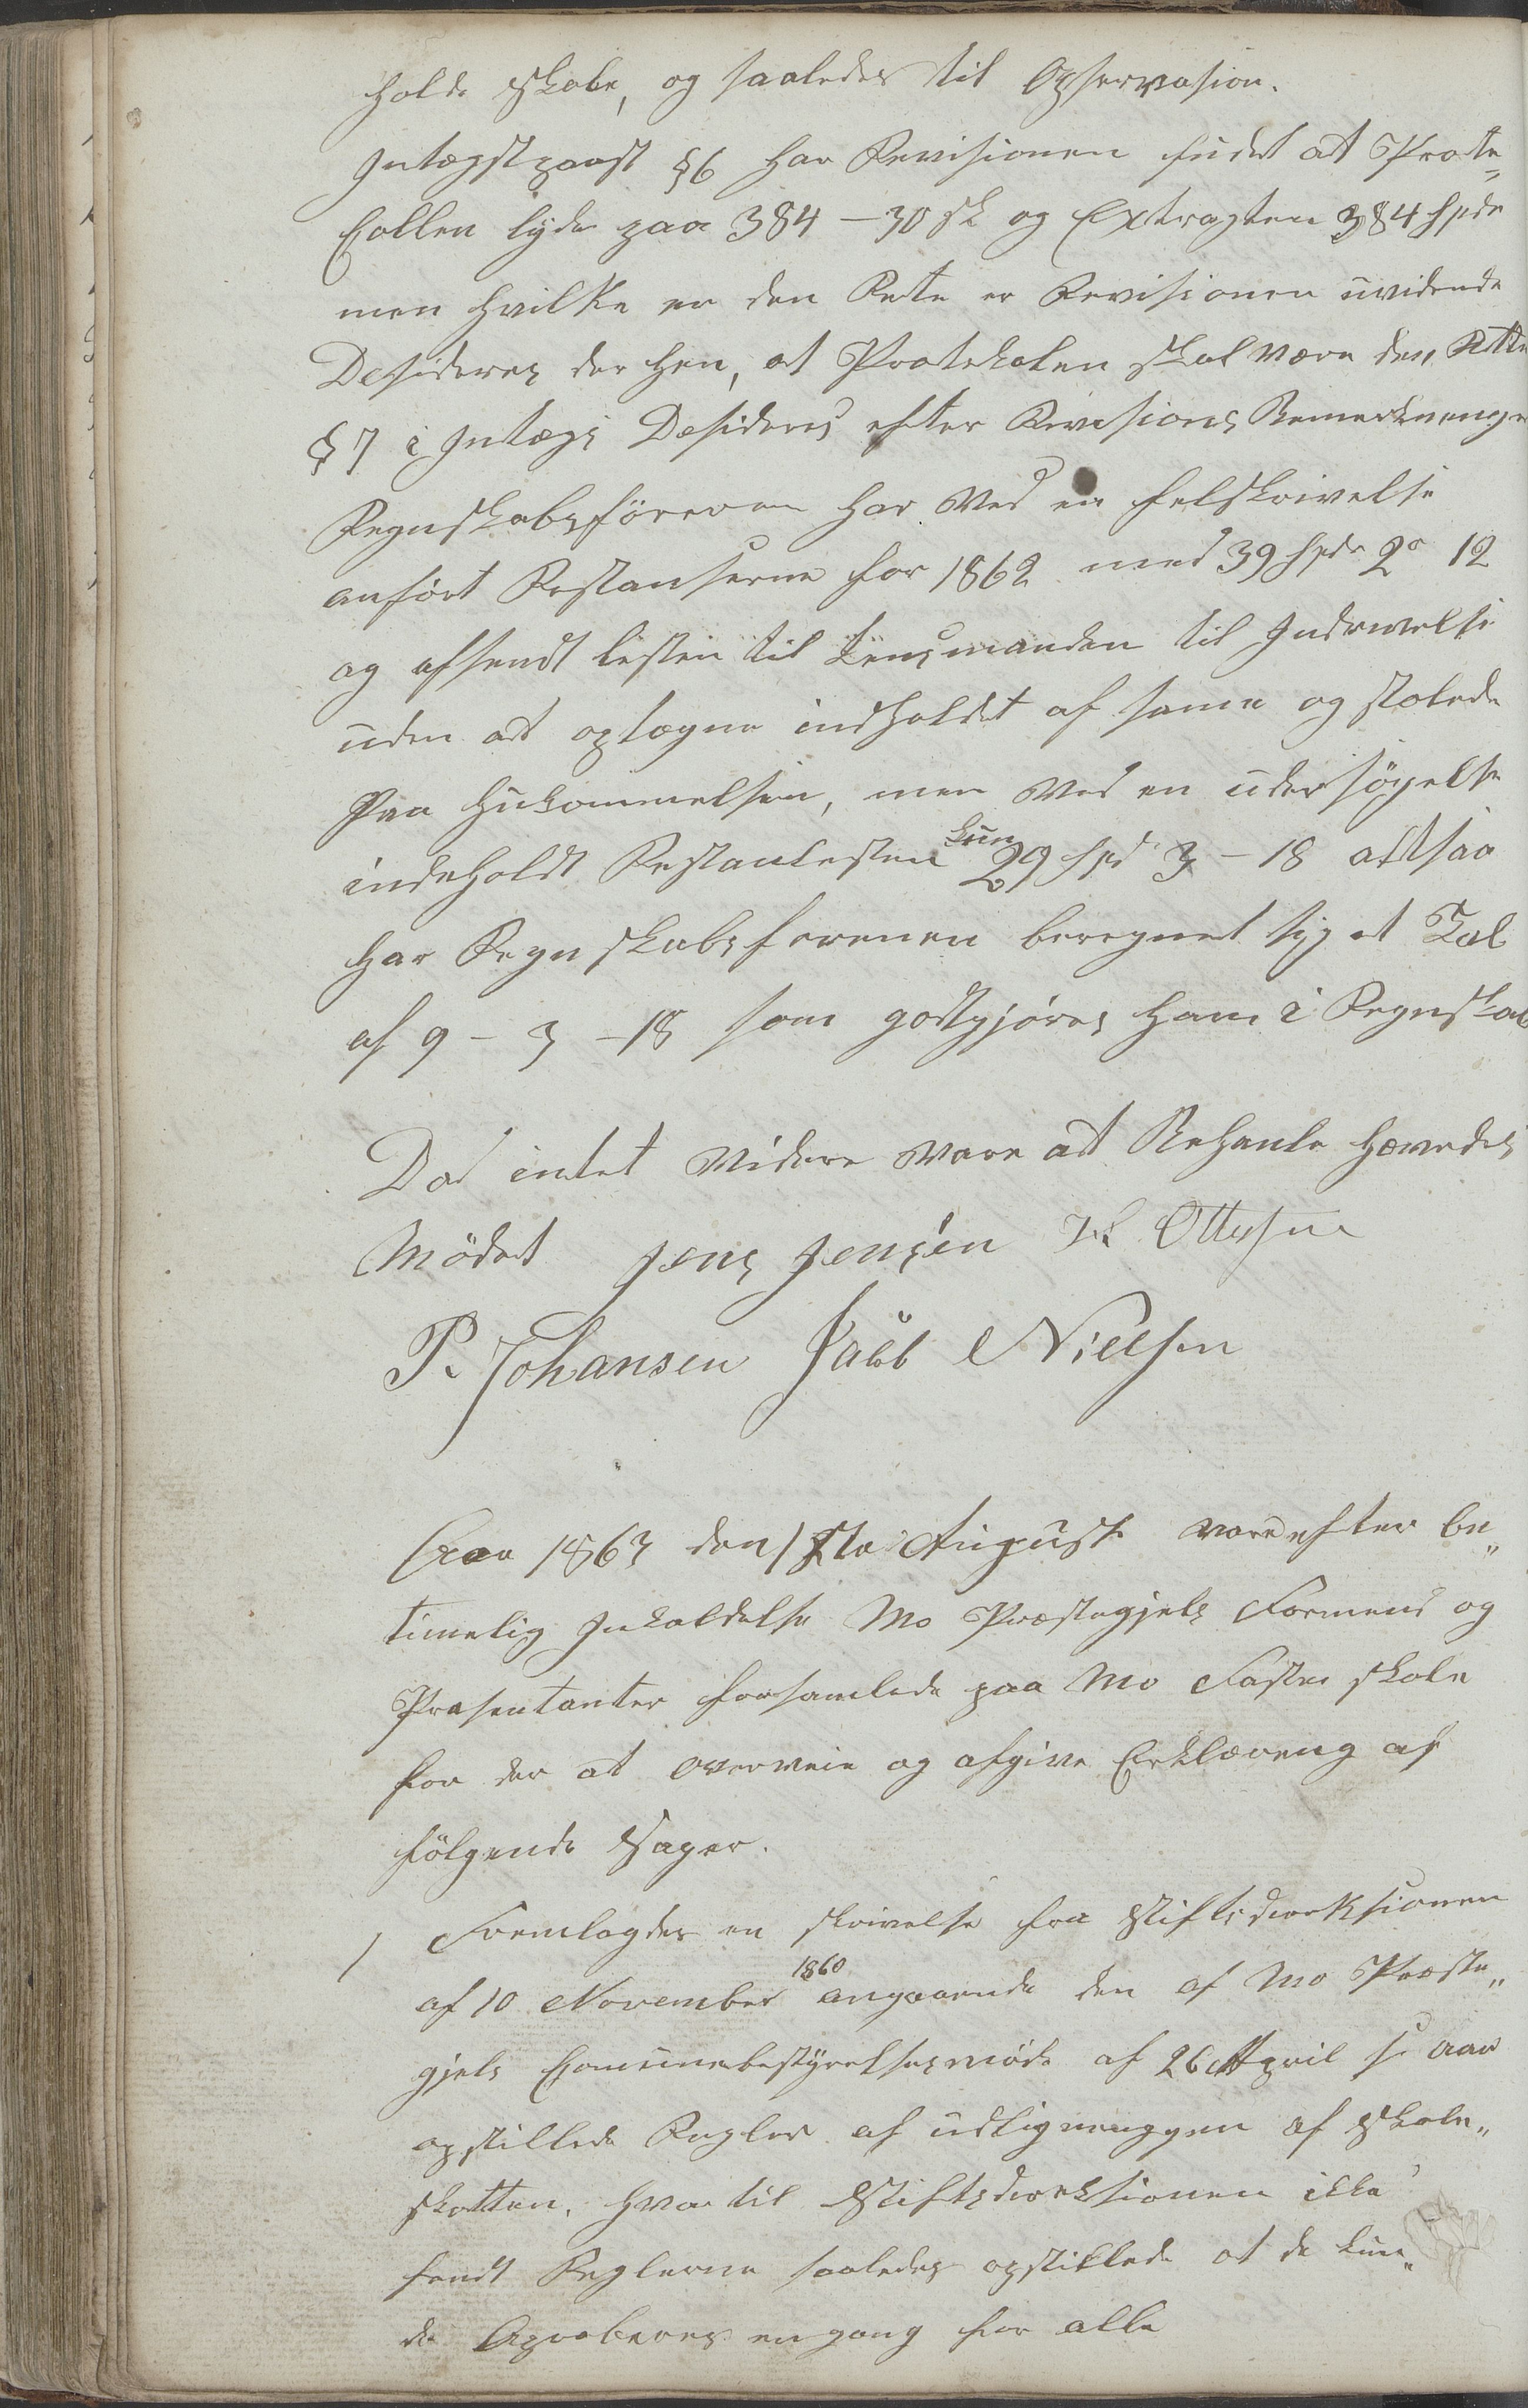 holde Skabe, og saaledes til Opservasion.
Intægstpaast §6 har Revisionen fudet at Prote-
collen lyde paa 384 – 30 sk og Extragten 384 spde
men hvilke er den Rete er Revisionen uvidende
Desideres der hen, at Protekolen skal være den Rette
§ 7 i Intægs Desideres efter Revisions Bemerkninger
Regnskabsføreren har Ved en feilskrivelse
anført Restanserne for 1862 med 39 spde 2 o 12
og afsendt listen til Lensmanden til Inddrivelse
uden at optegne indholdet af same og stolede
Paa Hukommelsen, men Ved en undersøgelse
indeholdt Restanlesten kun 29 spd 3 – 18 altsaa
har Regnskabsføreren beregnet sig et Tab
af 9 – 3 – 18 som godtgjøres ham i Regnskab
Da intet Videre Vare at Behanle hævedes
Mødet Jens Jensen Ottesen
P. Johansen Jakob Nielsen
Aar 1863 den 1ste August vare efter be„
timelig Inkaldelse Mo Præstegjels Formend og
Præsentanter forsamlede paa Mo Faste skole
for der at overveie og afgive Erklæreng af
følgende Sager.
1 Fremlagdes en skrivelse fra Stiftsdireksionen
af 10 November 1860 angaaende den af Mo Præste„
gjels Comunebestyrelsesmøde af 26 April s. Aar
opstillede Regler af udligningen af Skole„
skatten, hvor til Stiftsdireksionen ikke
fandt Reglerne saaledes opstillede at de kun„
de Aproberes engang for alle